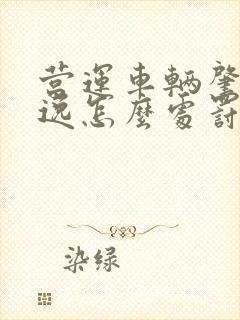 营運車輛肇
逃怎麼處罰
染绿